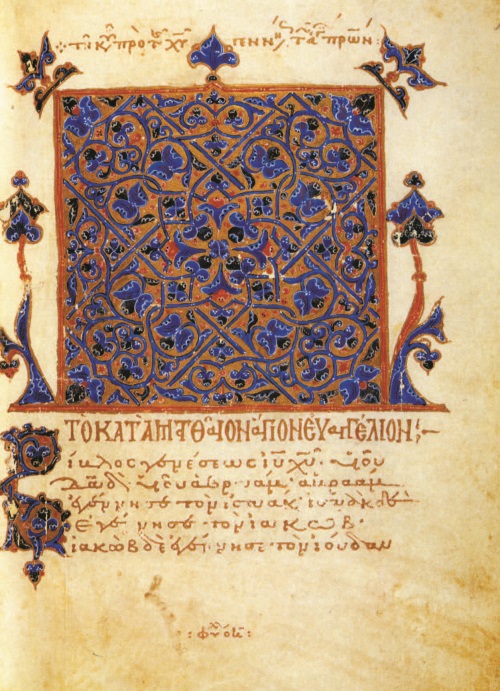 τῆ κυ πρὸ τ χυ γεννη τ ἁγ πρων:
ΤὸΚΑΤΑΜΑΤΘΑῖΟΝἅΓΙΟΝΕΥΑΓΓΕΛΙΟΝ:
Βίβλος γενέσεως ἰυ χυ· υἱοῦ
δαδ υἱοῦ ἀβραάμ· ἀβραὰμ
ἐγέννησε τὸν ἰσαάκ· ἰσαὰκ δὲ
ἐγέννησε τὸν ἰακώβ·
ἰακὼβ δὲ ἐγέννησε τὸν ἰούδαν